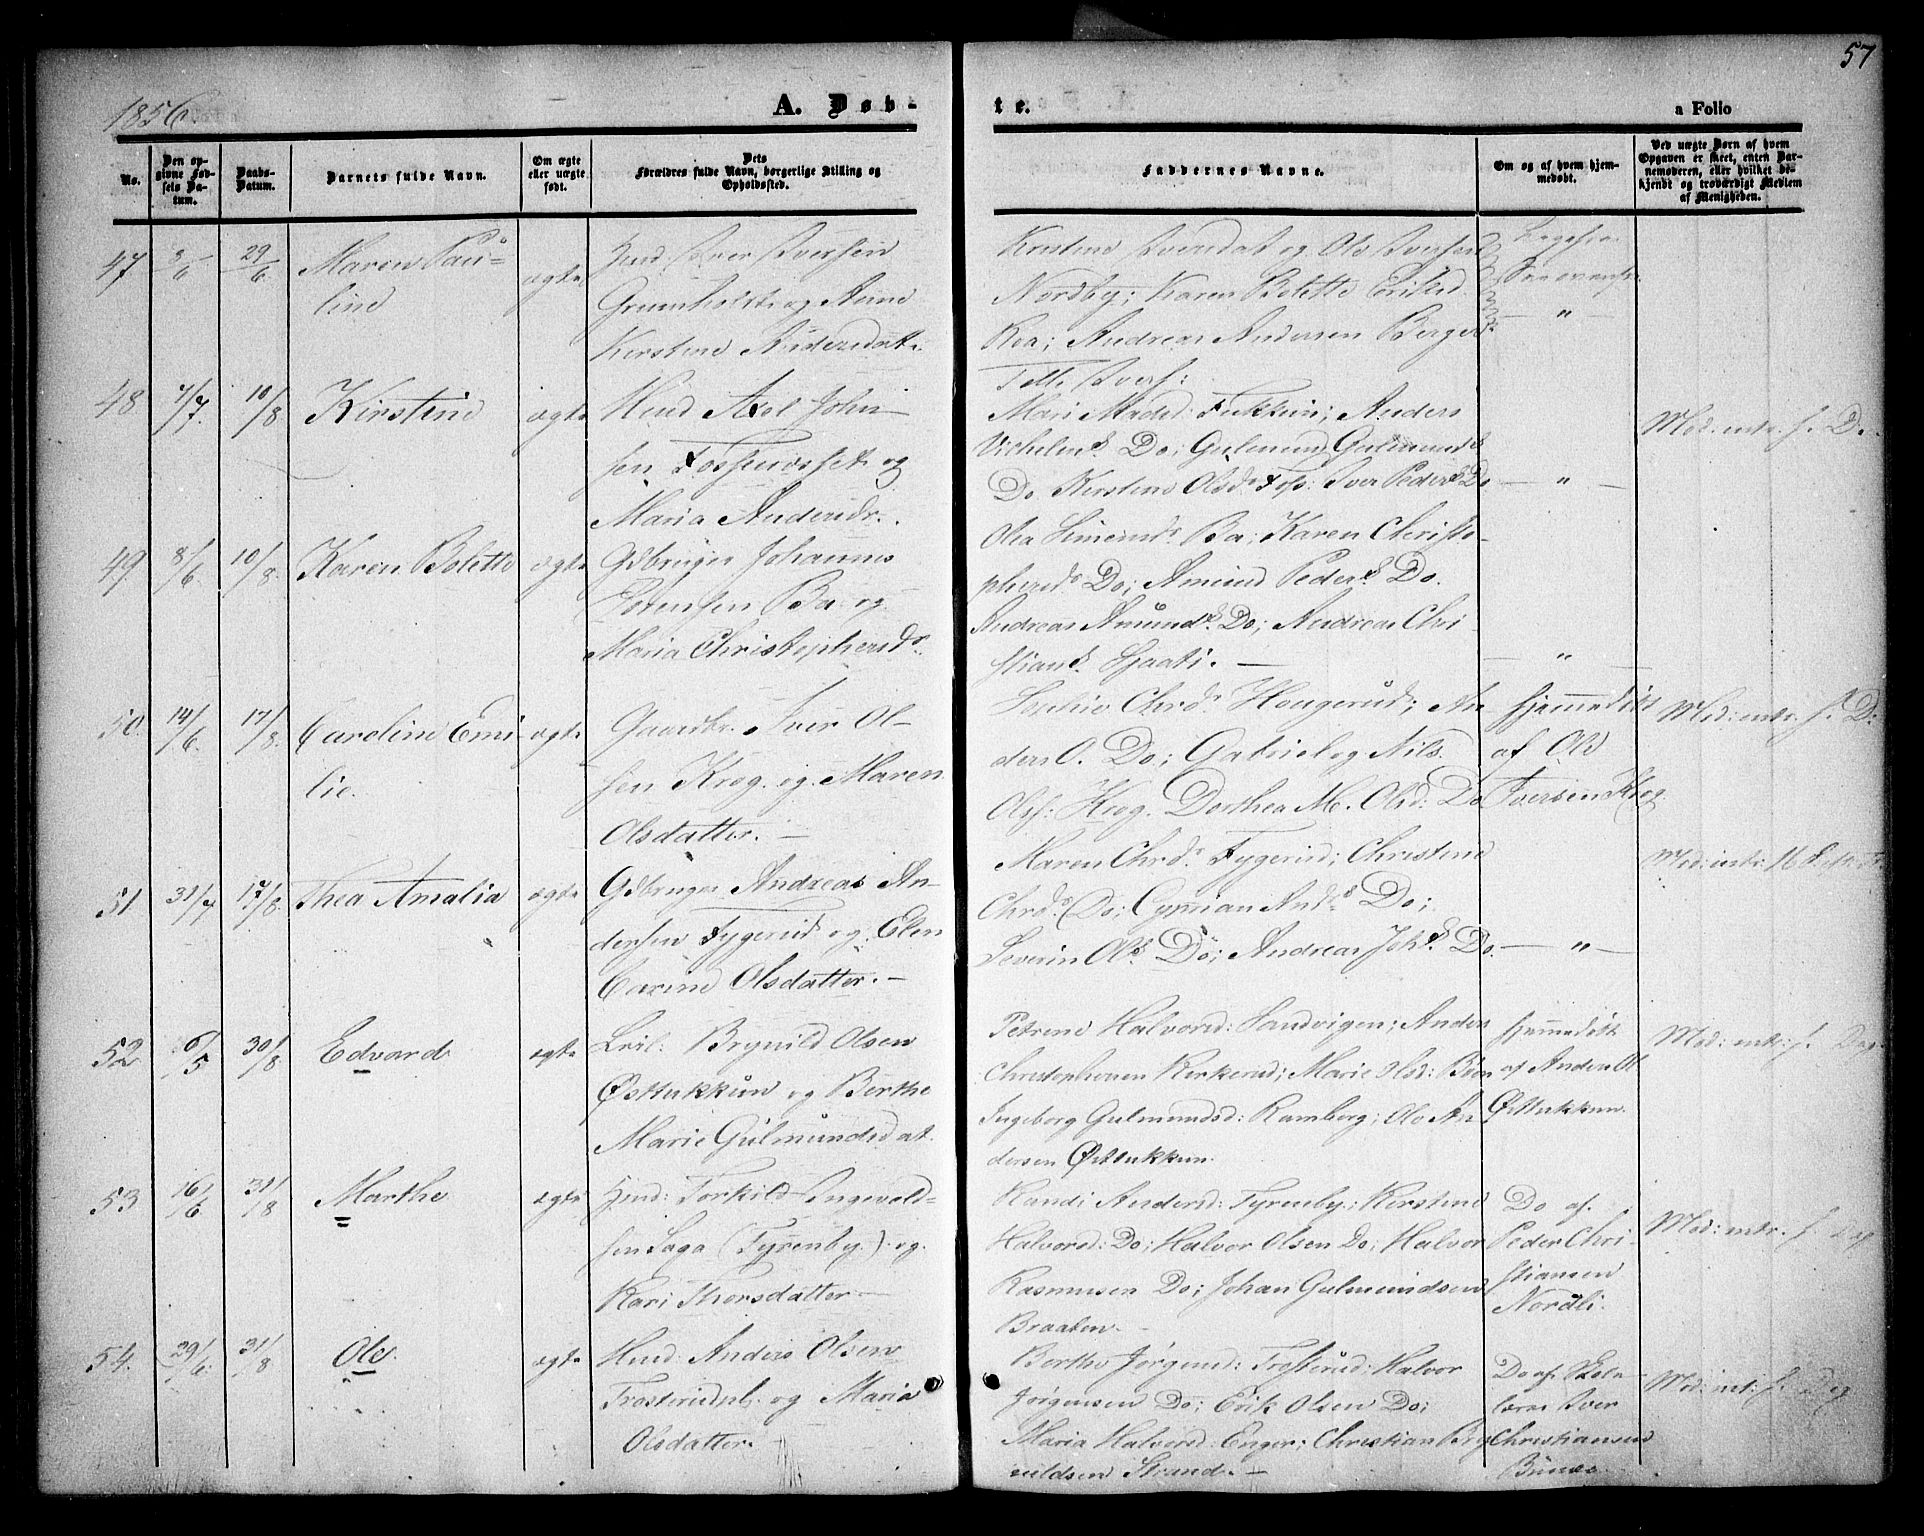 57
1856.
A. Døb-
te.
a Folio
No.
Den op-
givne Fød-
sels Da-
tum.
Daabs-
Datum.
Barnets fulde Navn.
Om ægte
eller uægte
født.
Dets
Forældres fulde Navn, borgerlige Stilling og
Opholdssted.
Faddernes Navne.
Om og af hvem hjem-
medøbt.
Ved uægte Børn af hvem
Opgaven er skeet, enten Bar-
nemoderen, eller hvilket be-
kjendt og troværdigt Medlem
af Menigheden.
47
29/6
Maren Pau-
line
ægte
Iver Iversen
Grumholt og Anne
Kirstine Andersdat.
Kirstine Iversdat og Ole Iversen
Nordby; Karen Bolette
Roa; Andreas Andersen Berger
48
7/7.
10/8
Kirstine
ægte
Huusd Axel John-
sen og
Maria Andersdr.
Mari Madsd: Anders
Vilhelms. Do; Gulmund Gulmunds
Do Kirstine Olsd. Foss: Iver Peders Do
— " —
Mod. intr. f. D.
49.
8/6
10/8.
Karen Bolette
ægte
Gdbruger Johannes
Sørensen Ba og
Maria Christophersdr.
Olea Simensdr Ba; Karen Christo-
phersd Do; Amund Peders. Do.
Andreas Amunds. Do; Andreas Chri-
stians. Haati. —
— " —
50.
14/6.
17/8.
Caroline Emi-
lie.
ægte
Gaardbr. Iver Ol-
sen Krog. og Maren
Olsdatter. —
Sophie Chrd. Hougerud; An
ders O. Do; Gabriel og Nils
Olss: Krog. Dorthea M. Olsd: Do
Hjemmedøbt
af Ole
Iversen Krog
Mod: intr. f. D:
51.
31/7
17/8.
Thea Amalia
ægte
Gdbruger Andreas An-
dersen Fygerud og Elen
Carine Olsdatter. —
Maren Chrd. Fygerud; Christine
Chrd. Do; Cyprian Ands Do;
Severin Ols. Do; Andreas Joh. Do.
— " —
52
6/5
30/8
Edvard
ægte
Leil: Brynild Olsen
Østtukkun og Berthe
Marie Gulmundsdat.
Petrine Halvorsd: Sandvigen; Anders
Christophersen Kirkerud; Marie Olsd: Bjør
Ingeborg Gulmundsd: Ramberg; Ole An
dersen Østtukkun.
Hjemmedøbt
af Anders Ol
Østtukkun.
Mod: intr: f. Dag
53.
16/6
31/8
Marthe
ægte
Huusd: Torkild Ingevald-
sen Saga (Fyrenby.) og
Kari Thorsdatter —
Randi Andersd: Fyrenby; Kirstine
Halvorsd: Do; Halvor Olsen Do; Halvor
Rasmusen Do; Johan Gulmundsen
Braaten. —
Do af.
Peder Chri-
stiansen
Nordli.
Mod: intr. f Dag
54.
29/6.
31/8
Ole.
ægte
Huusd: Anders Olsen
Frosterud og Maria
Olsdatter.
Berthe Jørgensd: Frosterud; Halvor
Jørgensen Do; Erik Olsen Do;
Maria Halvorsd: Enger; Christian Bry
nildsen Strand. —
Do af Skole-
lærer Iver
Christiansen
Bunæs.
Mod: intr: f. Dag